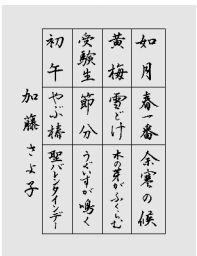 如月
春一番
余寒の候
黄梅
雪どけ
木の芽がふくらむ
受験生
節分
うぐいすが鳴く
初午
やぶ椿
聖バレンタインデー
加藤さよ子